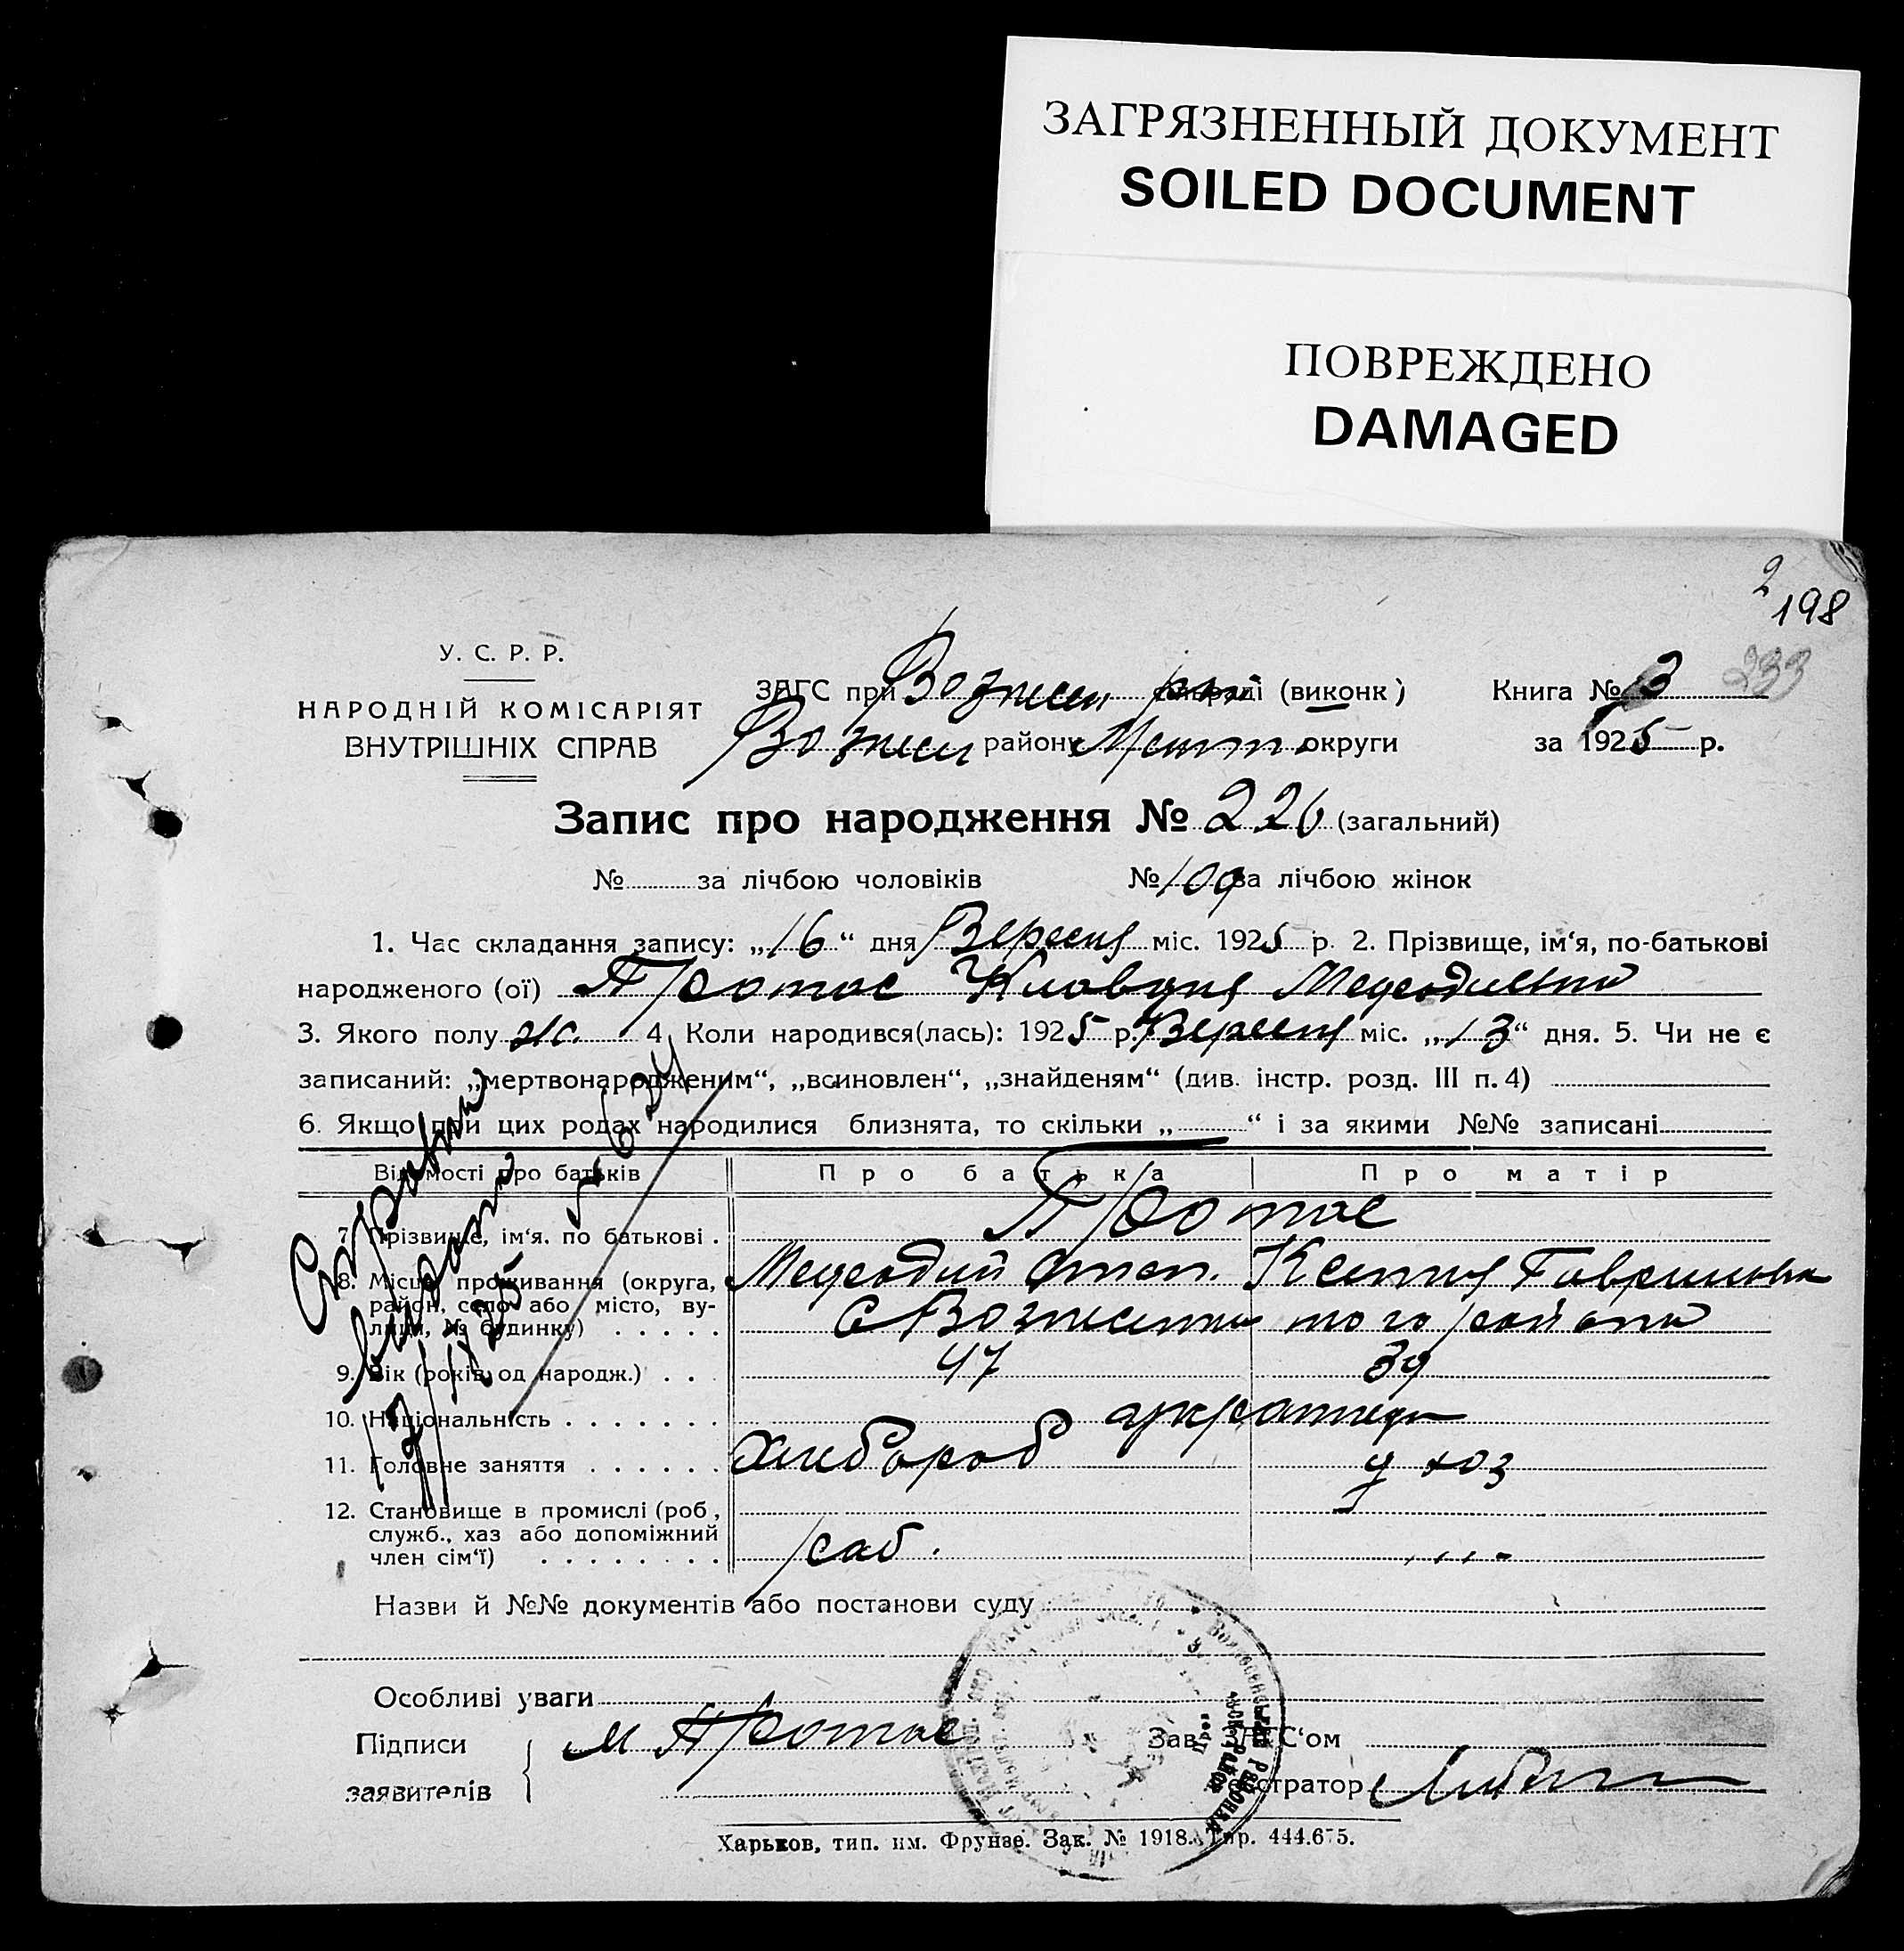 ЗАГРЯЗНЕННЫЙ ДОКУМЕНТ
SOILED DOCUMENT
ПОВРЕЖДЕНО
DAMAGED
2
198
233
У. С. Р. Р.
НАРОДНІЙ КОМІСАРІЯТ
ВНУТРІШНІХ СПРАВ
ЗАГС при Вознесен рай (виконк)
Вознесен району округи
Книга № 3
за 1925 р.
Запис про народження № 226 (загальний)
№ за лічбою чоловіків № 109 за лічбою жінок
1. Час складання запису: „16“ дня Вересня міс. 1925 р. 2. Прізвище, ім‘я, по-батькові
народженого (ої) Протас Клавдия
3. Якого полу ж. 4. Коли народився(лась): 1925 р. Вересня міс. „13“ дня. 5. Чи не є
записаний: „мертвонародженим“, „всиновлен“, „знайденям“ (див. інстр. розд. III п. 4)
6. Якщо при цих родах народилися близнята, то скільки „ “ і за якими №№ записані
Відомості про батьків Про батька Про матір
7. Прізвище, ім‘я. по батькові . Протас
8. Місце проживання (округа, Мефодий Степ. Ксения Гавриловна
район, село або місто, ву-
лиця, № будинку) . . . . . с Вознесенка того района
9. Вік (років од народж.) . . . 47 39
10. Національність . . . . . . .
11. Головне заняття . . . . . . Хлибороб д хоз
12. Становище в промислі (роб,
служб., хаз або допоміжний
член сім‘ї) . . . . . . . . раб.
Справка
видана
Назви й №№ документів або постанови суду
Особливі уваги
Підписи М Протас Зав. ЗАГС‘ом
заявителів Реєстратор
Харьков, тип. им. Фрунзе. Зак. № 1918. Тир. 444.675.